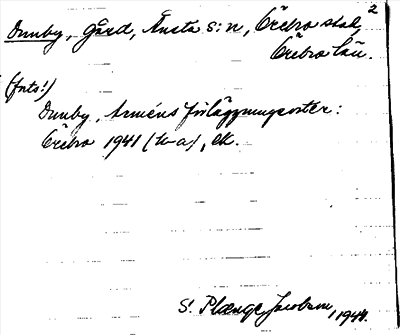 2
Ormby, gård, Ånsta s:n, Örebro stad,
Örebro län.
(forts!)
Ormby, Arméns förläggningsorter:
Örebro 1941 (to-a), ek.
S. Plænge Jacobson, 1944.